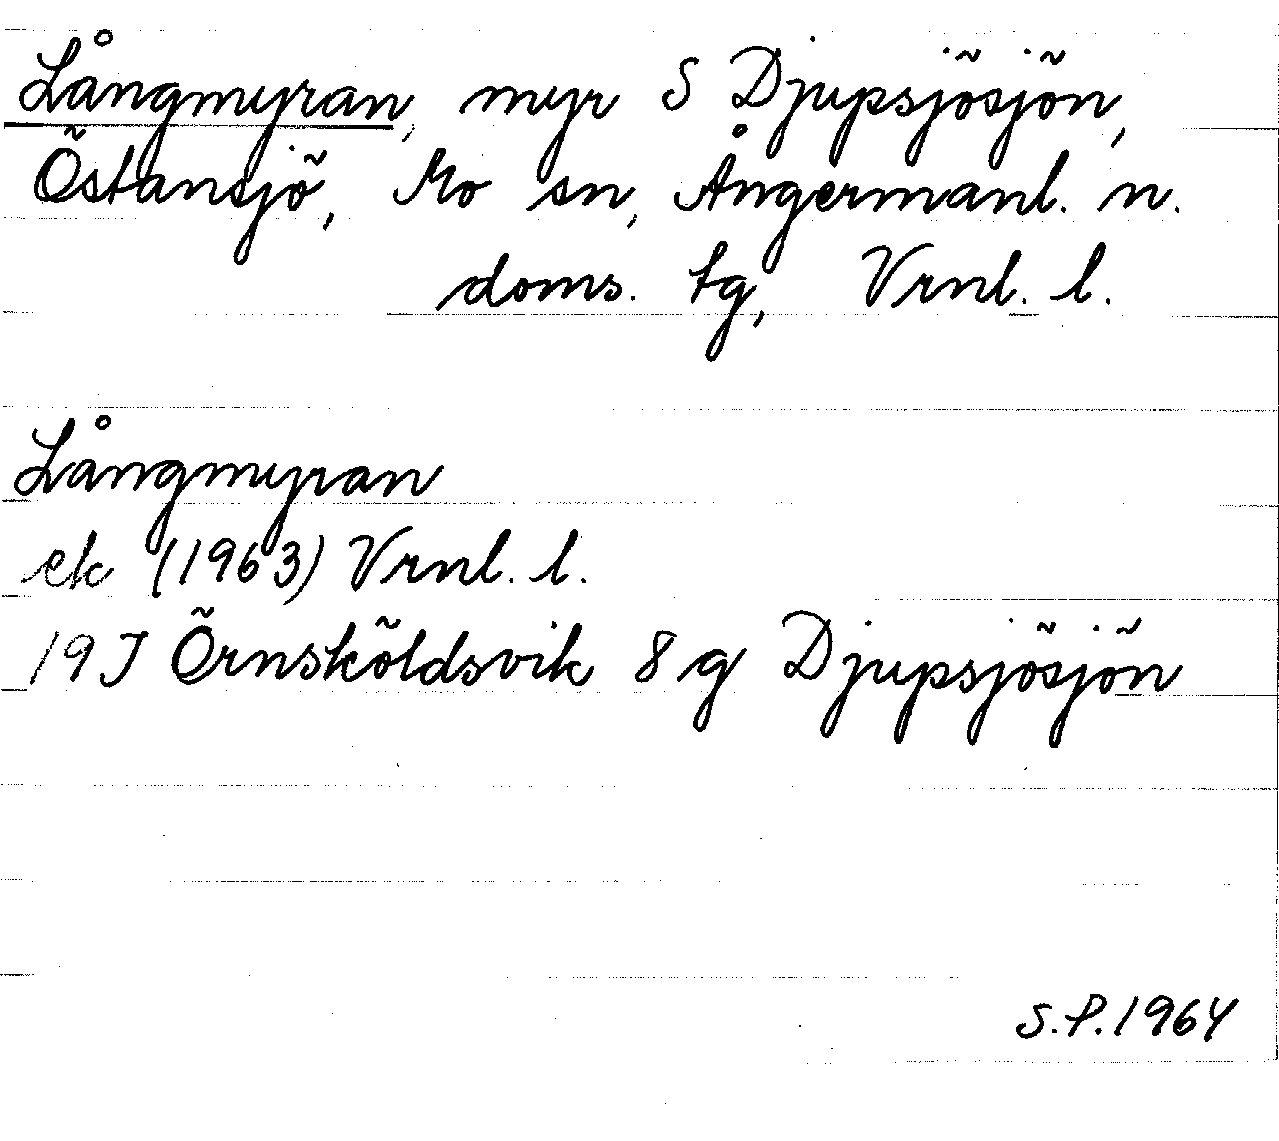 Långmyran, myr S Djupsjösjön,
Östansjö, Mo sn, Ångermanl. n.
doms. tg, Vrnl. l.
Långmyran
ek (1963) Vrnl. l.
19J Örnsköldsvik 8 g Djupsjösjön
S.P.1964